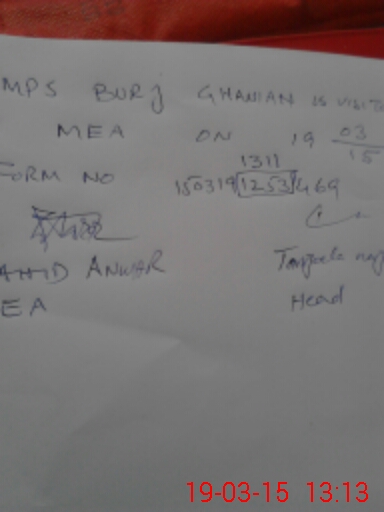 MPS BURJ GHANIAN IS VISIT
MEA ON 19 03
15
FORM NO 1311
150319 1253 469
AHID ANWAR
EA Head
19-03-15 13:13